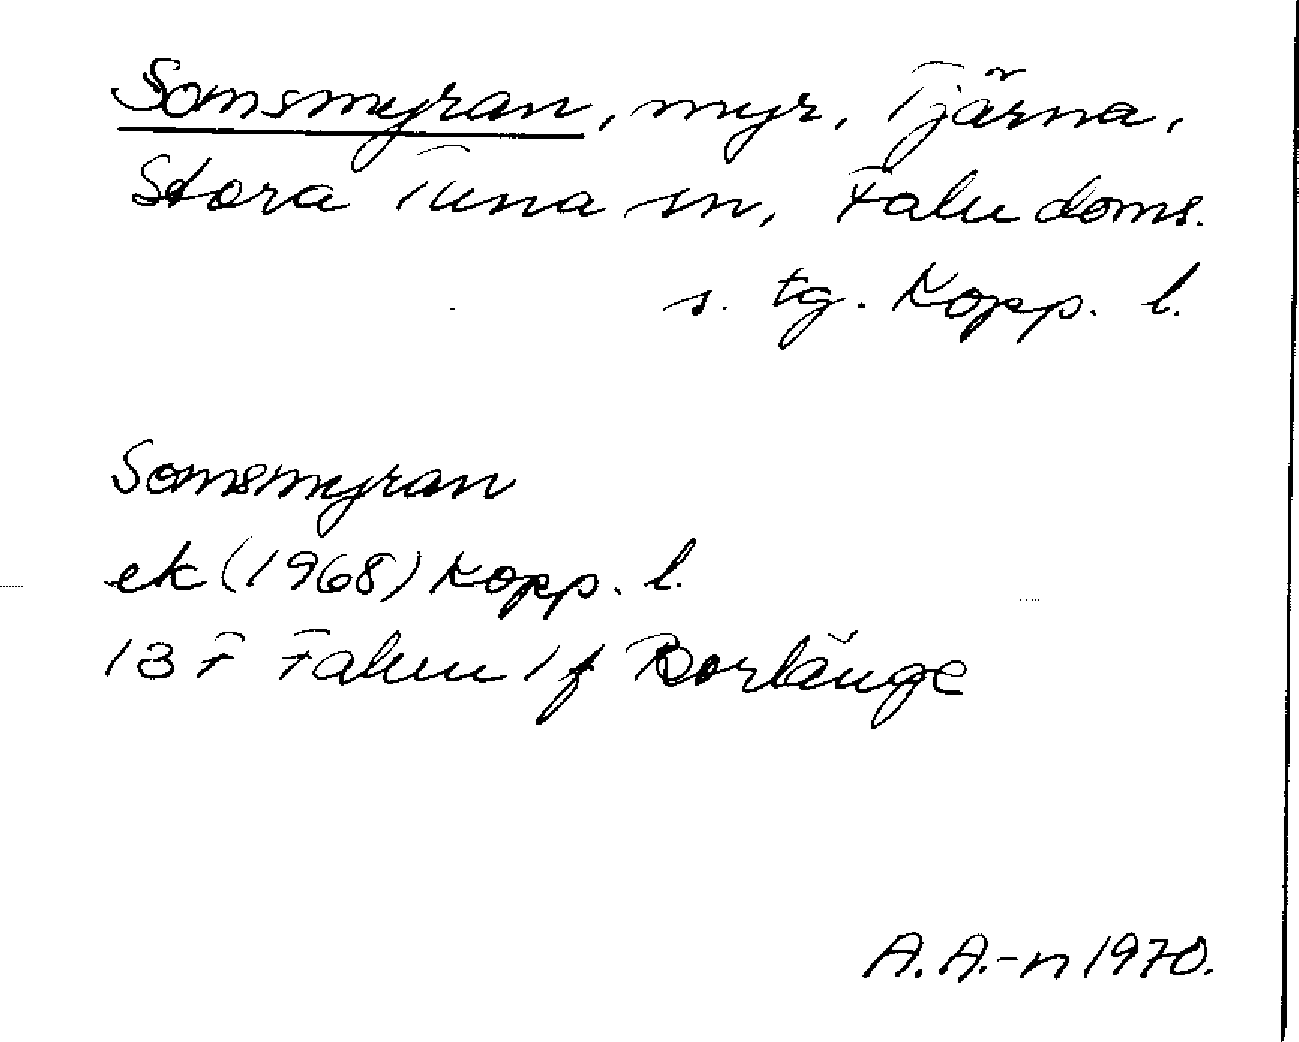 Somsmyran, myr, Tjärna,
Stora Tuna sn, Falu doms.
s. tg. Kopp. l.
Somsmyran
ek (1968) Kopp. l.
13 F Falun 1 f Borlänge
A. A.-n 1970.